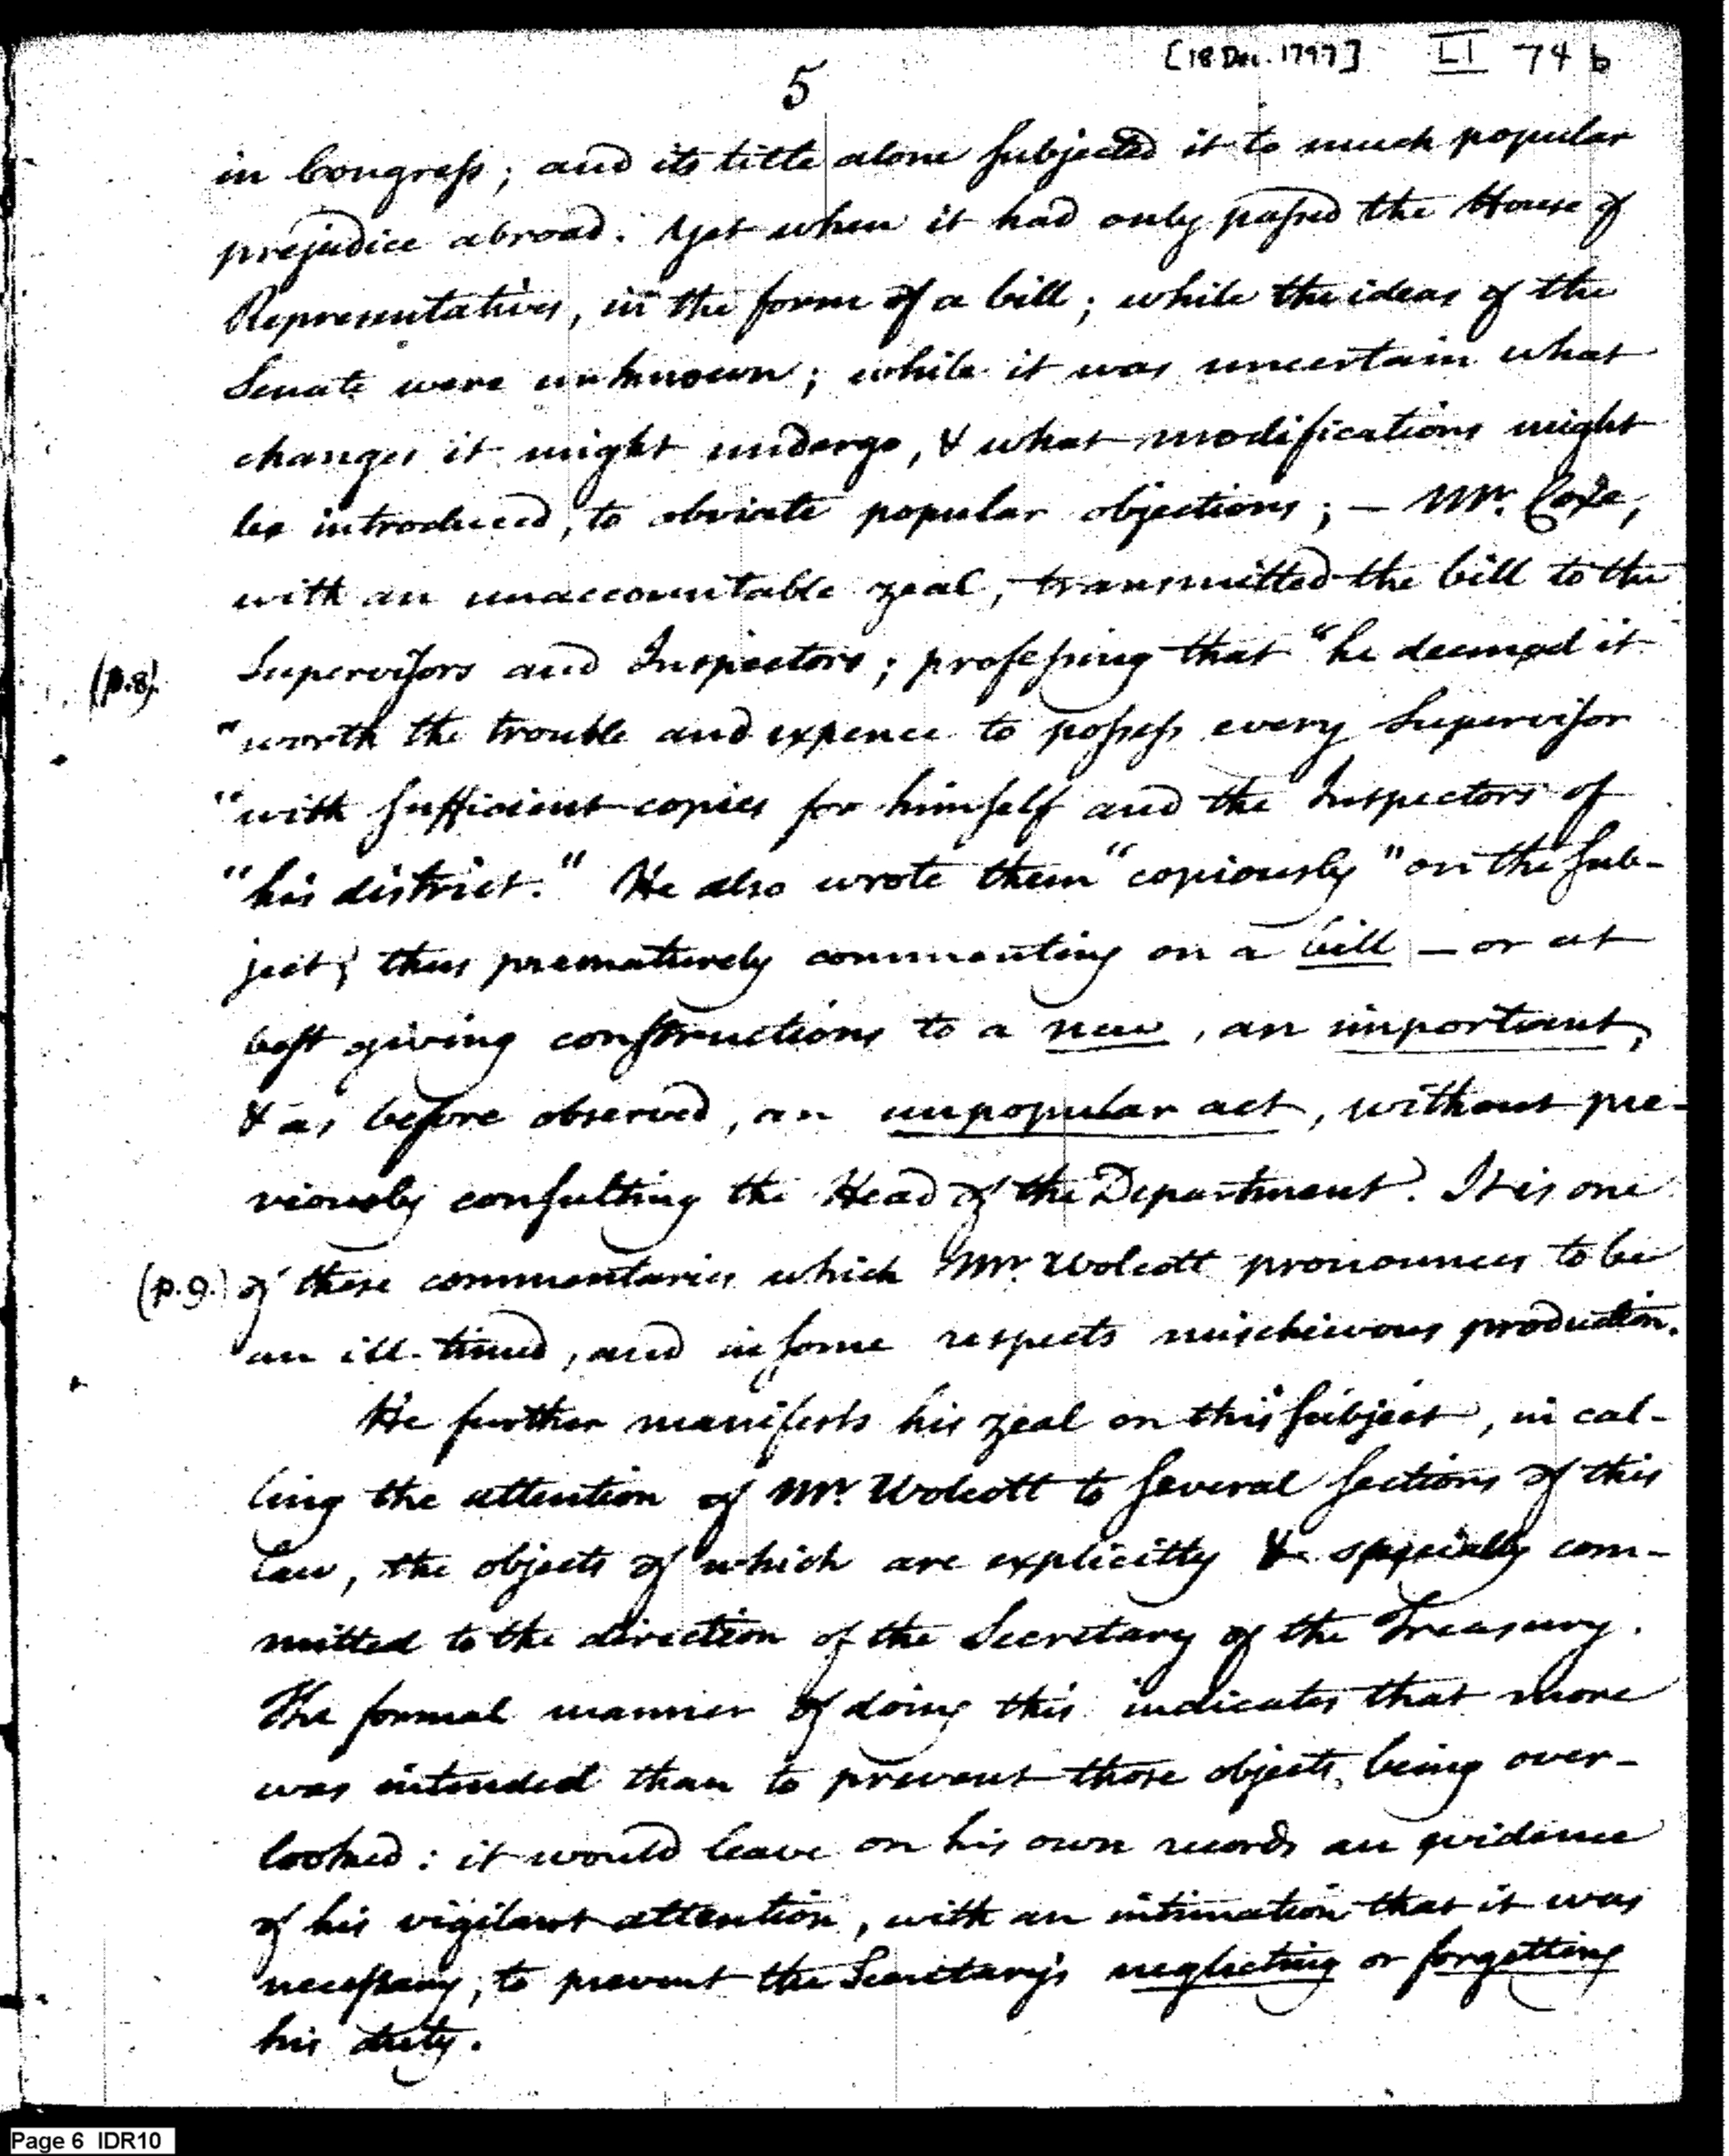 [18 Dec. 1797] LI 74 b
5
in Congress; and its title alone subjected it to much popular
prejudice abroad. Yet when it had only passed the House of
Representatives, in the form of a bill; while the ideas of the
Senate were unknown; while it was uncertain what
changes it might undergo, & what modifications might
be introduced, to obviate popular objections; — Mr. Coxe,
with an unaccountable zeal, transmitted the bill to the
(p.8) Supervisors and Inspectors; professing that "he deemed it
"worth the trouble and expence to possess every Supervisor
"with sufficient copies for himself and the Inspectors of
"his district." He also wrote them "copiously" on the sub-
ject; thus prematurely commenting on a bill — or at
best giving constructions to a new, an important,
& as before observed, an unpopular act, without pre-
viously consulting the Head of the Department. It is one
(p.9.) of these commentaries which Mr. Wolcott pronounces to be
an ill-timed, and in some respects mischievous production.
He further manifests his zeal on this subject, in cal-
ling the attention of Mr. Wolcott to several sections of this
law, the objects of which are explicitly & specially com-
mitted to the direction of the Secretary of the Treasury.
The formal manner of doing this indicates that more
was intended than to prevent those objects being over-
looked: it would leave on his own records an evidence
of his vigilant attention, with an intimation that it was
necessary, to prevent the Secretary's neglecting or forgetting
his duty.
Page 6 IDR10